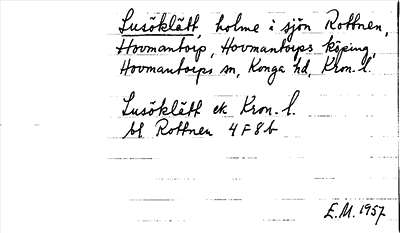 Lusöklätt, holme i sjön Rottnen,
Hovmantorp, Hovmantorps köping,
Hovmantorps sn, Konga hd, Kron. l.
Lusöklätt ek Kron. l.
bl Rottnen 4 F 8 b
E.M. 1957